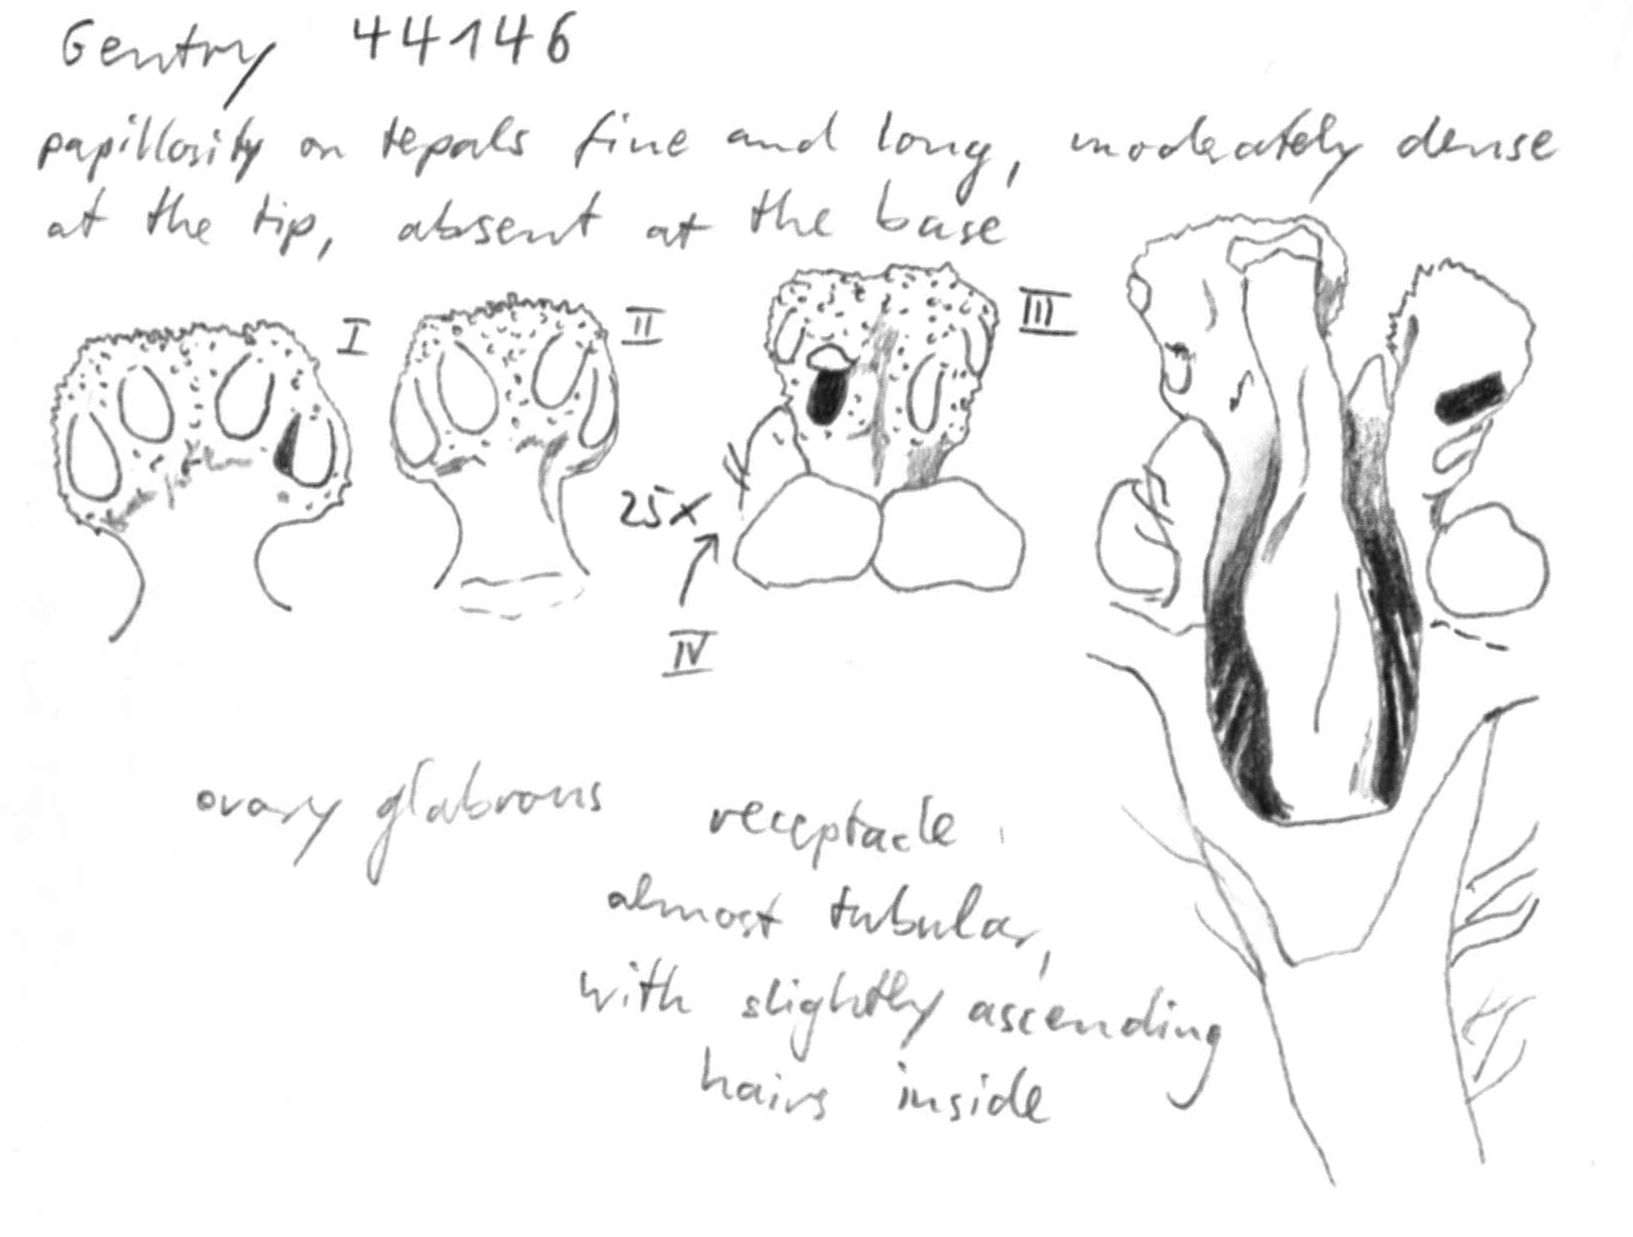 Gentry 44146
papillosity on tepals fine and long, moderately dense
at the tip, absent at the base
I
II
III
25x
IV
ovary glabrous
receptacle
almost tubular,
with slightly ascending
hairs inside